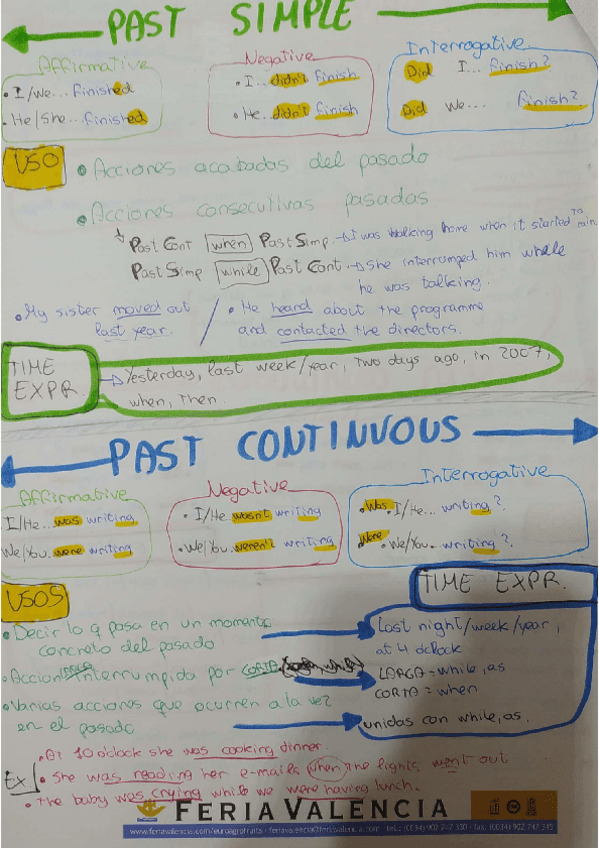 PAST SIMPLE
Affirmative
• I/We... finished
• He/She... finished
Negative
• I... didn't finish
• He... didn't finish
Interrogative
Did I... finish?
Did we... finish?
USO
• Acciones acabadas del pasado
• Acciones consecutivas pasadas
Past Cont when Past Simp. → I was walking home when it started to rain
Past Simp while Past Cont. → She interrumped him while
he was talking.
• My sister moved out
last year.
• He heard about the programme
and contacted the directors.
TIME
EXPR.
→ Yesterday, last week/year, two days ago, in 2007,
when, then.
PAST CONTINUOUS
Affirmative
I/He... was writing
We/You... were writing
Negative
• I/He... wasn't writing
• We/You... weren't writing
Interrogative
• Was I/He... writing?
Were • We/You... writing?
USOS
• Decir lo q pasa en un momento
concreto del pasado
• Accion larga interrumpida por corta
• Varias acciones que ocurren a la vez
en el pasado
TIME EXPR.
Last night/week/year,
at 4 o'clock
LARGA = while, as
CORTA = when
unidas con while, as.
Ex/
• At 10 o'clock she was cooking dinner.
• She was reading her e-mails when the lights went out
• The baby was crying while we were having lunch.
FERIA VALENCIA
www.feriavalencia.com/euroagrofruits · feriavalencia@feriavalencia.com · tel.: (0034) 902 747 330 · fax: (0034) 902 747 345